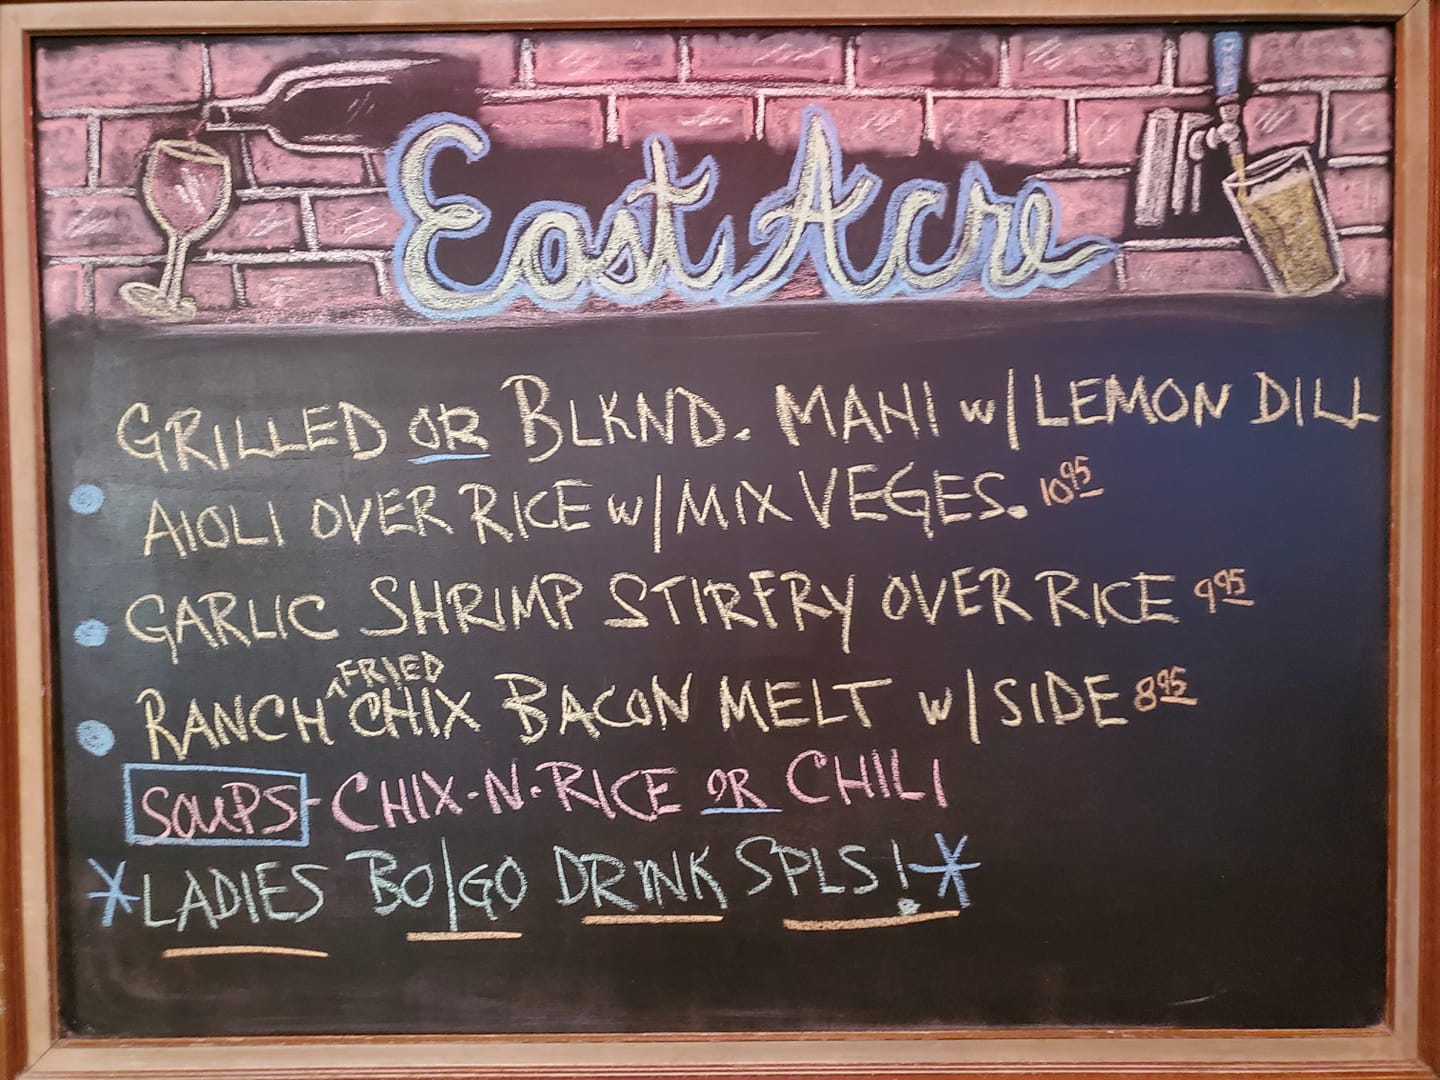 East Acre
GRILLED OR BLKND. MAHI w/ LEMON DILL
AIOLI OVER RICE w/ MIX VEGES. 10 95
GARLIC SHRIMP STIRFRY OVER RICE 9 95
RANCH ^FRIED CHIX BACON MELT w/ SIDE 8 95
SOUPS - CHIX-N-RICE OR CHILI
*LADIES BO/GO DRINK SPLS!*